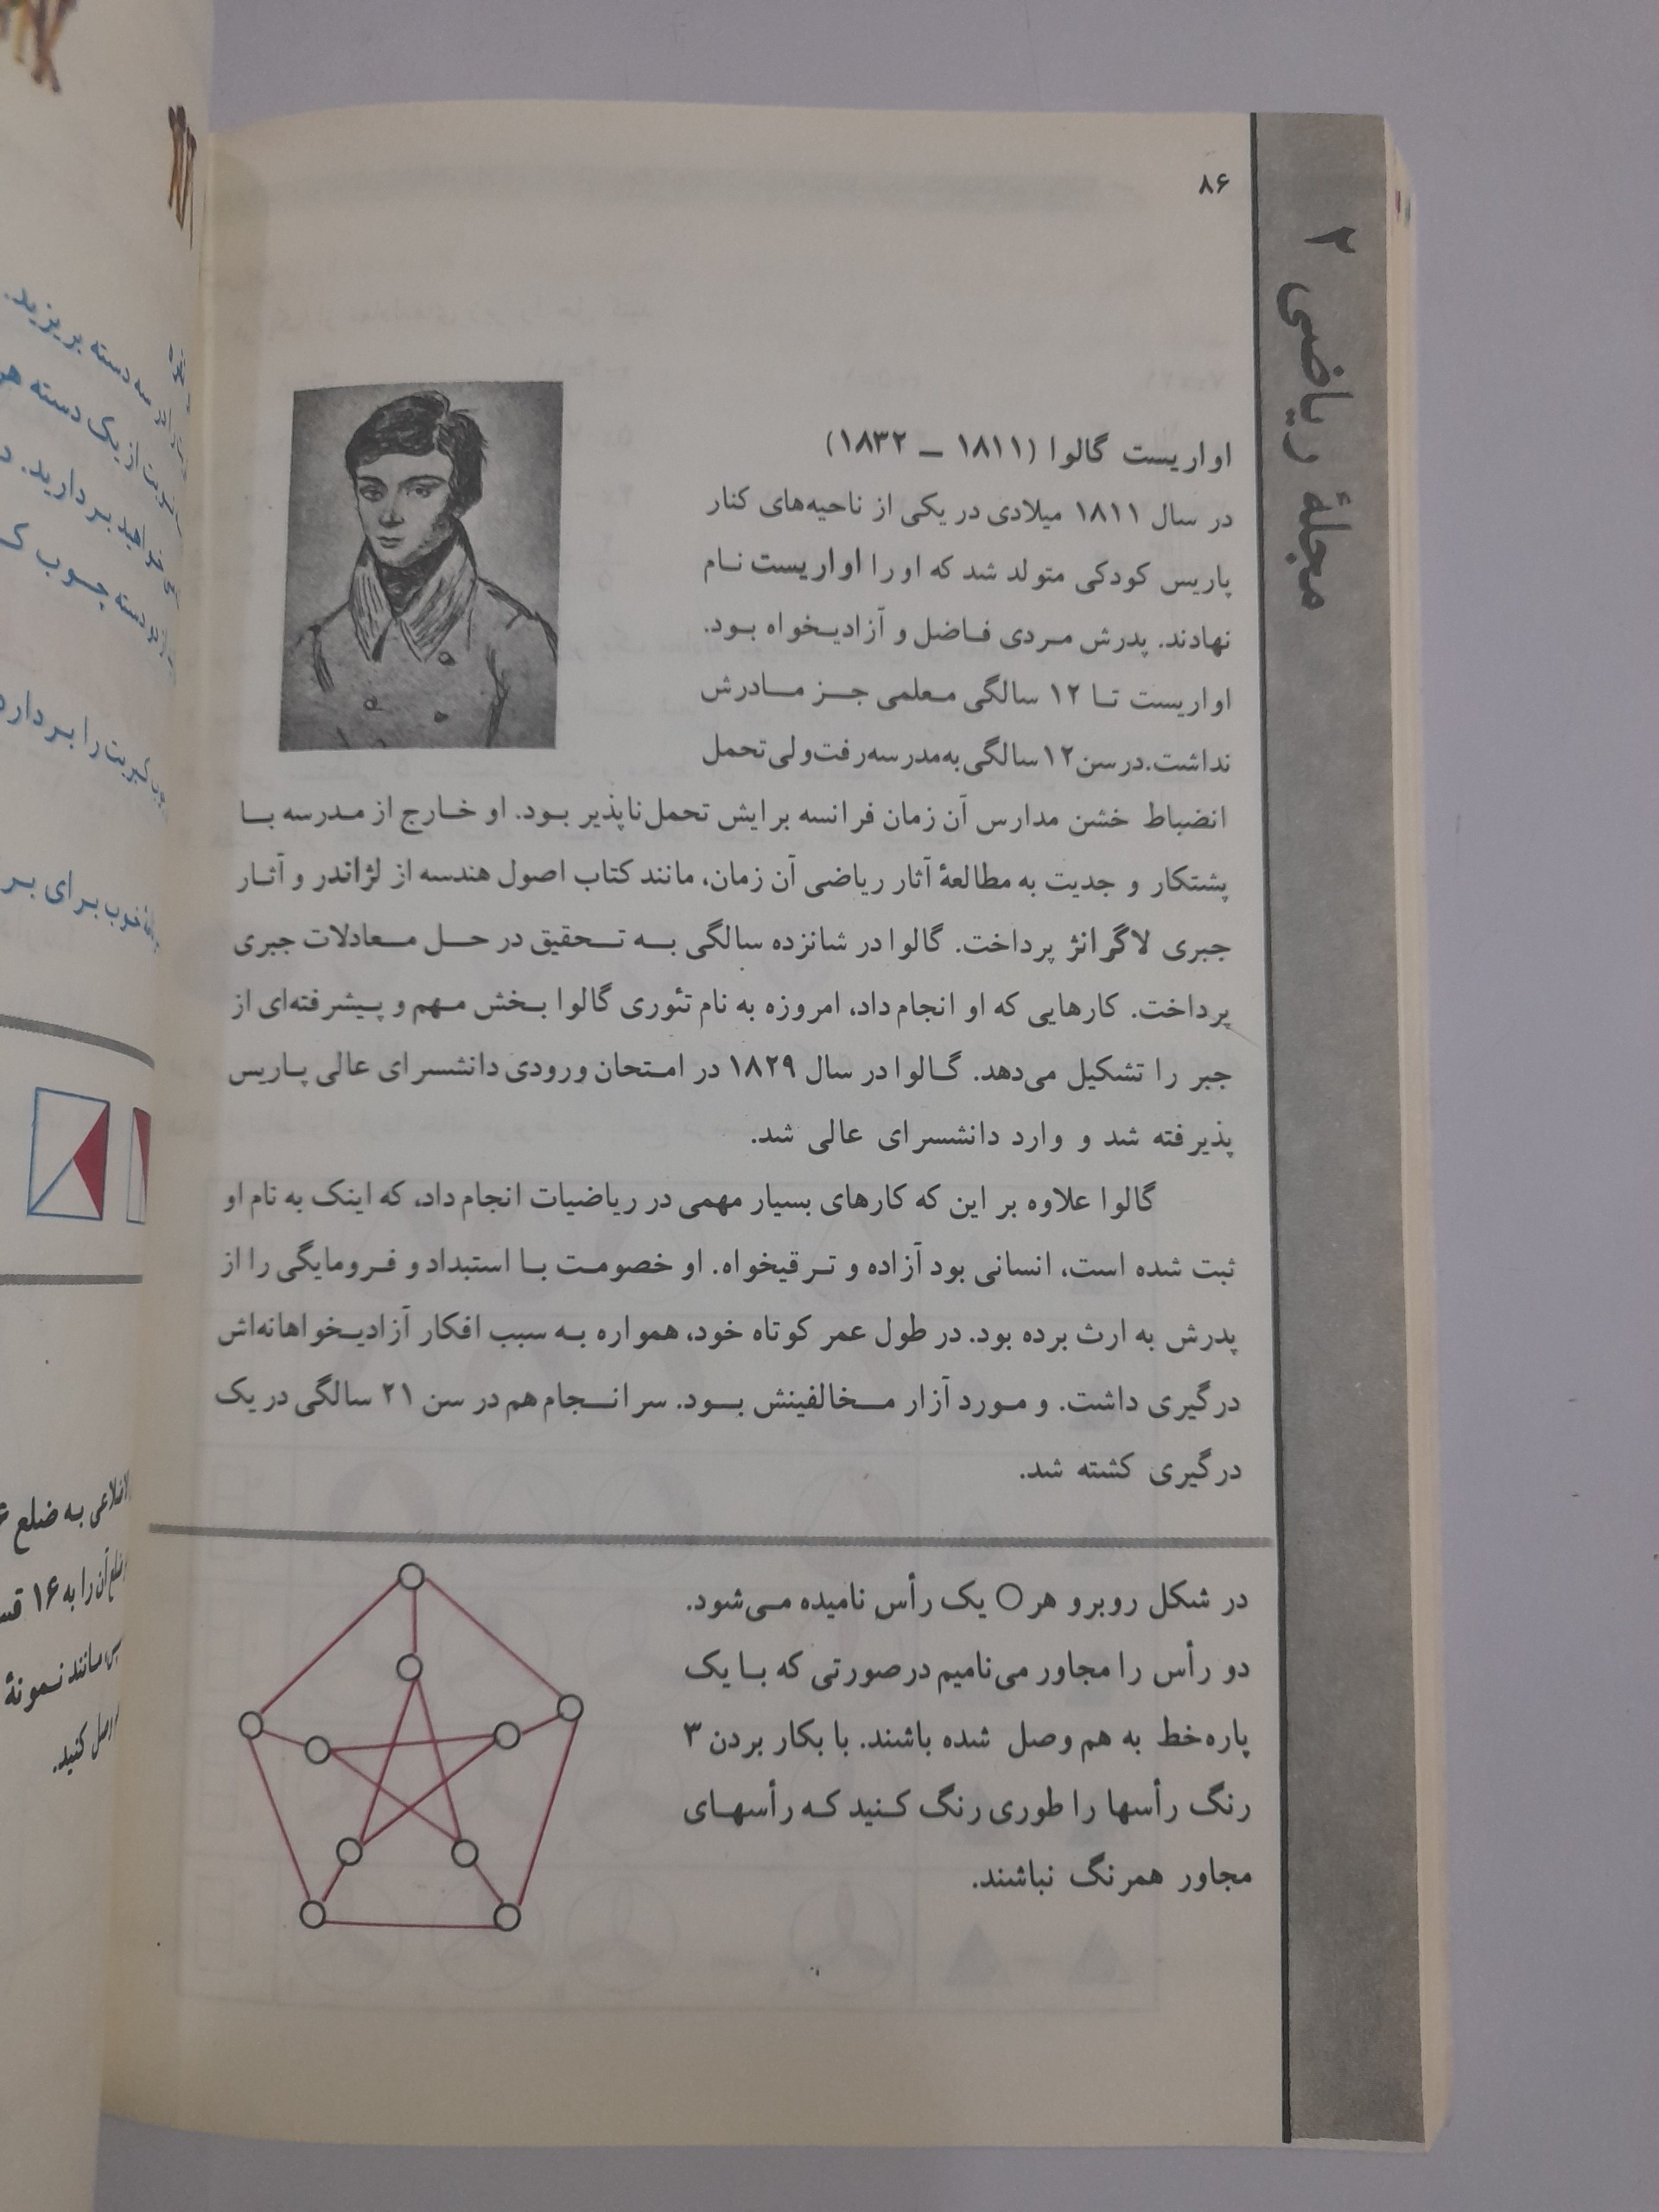 ۸۶
مجلهٔ ریاضی ۲
اواریست گالوا (۱۸۱۱ ــ ۱۸۳۲)
در سال ۱۸۱۱ میلادی در یکی از ناحیه‌های کنار
پاریس کودکی متولد شد که او را اواریست نام
نهادند. پدرش مردی فاضل و آزادیخواه بود.
اواریست تا ۱۲ سالگی معلمی جز مادرش
نداشت. در سن ۱۲ سالگی به مدرسه رفت ولی تحمل
انضباط خشن مدارس آن زمان فرانسه برایش تحمل‌ناپذیر بود. او خارج از مدرسه با
پشتکار و جدیت به مطالعهٔ آثار ریاضی آن زمان، مانند کتاب اصول هندسه از لژاندر و آثار
جبری لاگرانژ پرداخت. گالوا در شانزده سالگی به تحقیق در حل معادلات جبری
پرداخت. کارهایی که او انجام داد، امروزه به نام تئوری گالوا بخش مهم و پیشرفته‌ای از
جبر را تشکیل می‌دهد. گالوا در سال ۱۸۲۹ در امتحان ورودی دانشسرای عالی پاریس
پذیرفته شد و وارد دانشسرای عالی شد.
گالوا علاوه بر این که کارهای بسیار مهمی در ریاضیات انجام داد، که اینک به نام او
ثبت شده است، انسانی بود آزاده و ترقیخواه. او خصومت با استبداد و فرومایگی را از
پدرش به ارث برده بود. در طول عمر کوتاه خود، همواره به سبب افکار آزادیخواهانه‌اش
درگیری داشت. و مورد آزار مخالفینش بود. سرانجام هم در سن ۲۱ سالگی در یک
درگیری کشته شد.
در شکل روبرو هر ○ یک رأس نامیده می‌شود.
دو رأس را مجاور می‌نامیم در صورتی که با یک
پاره‌خط به هم وصل شده باشند. با بکار بردن ۳
رنگ رأسها را طوری رنگ کنید که رأسهای
مجاور همرنگ نباشند.
سه دسته بریزید.
از یک دسته
خواهید بردارید.
دسته چوب
کبریت را بردارد
خوب برای
به ضلع ۶
آن را به ۱۶
مانند نمونهٔ
وصل کنید.